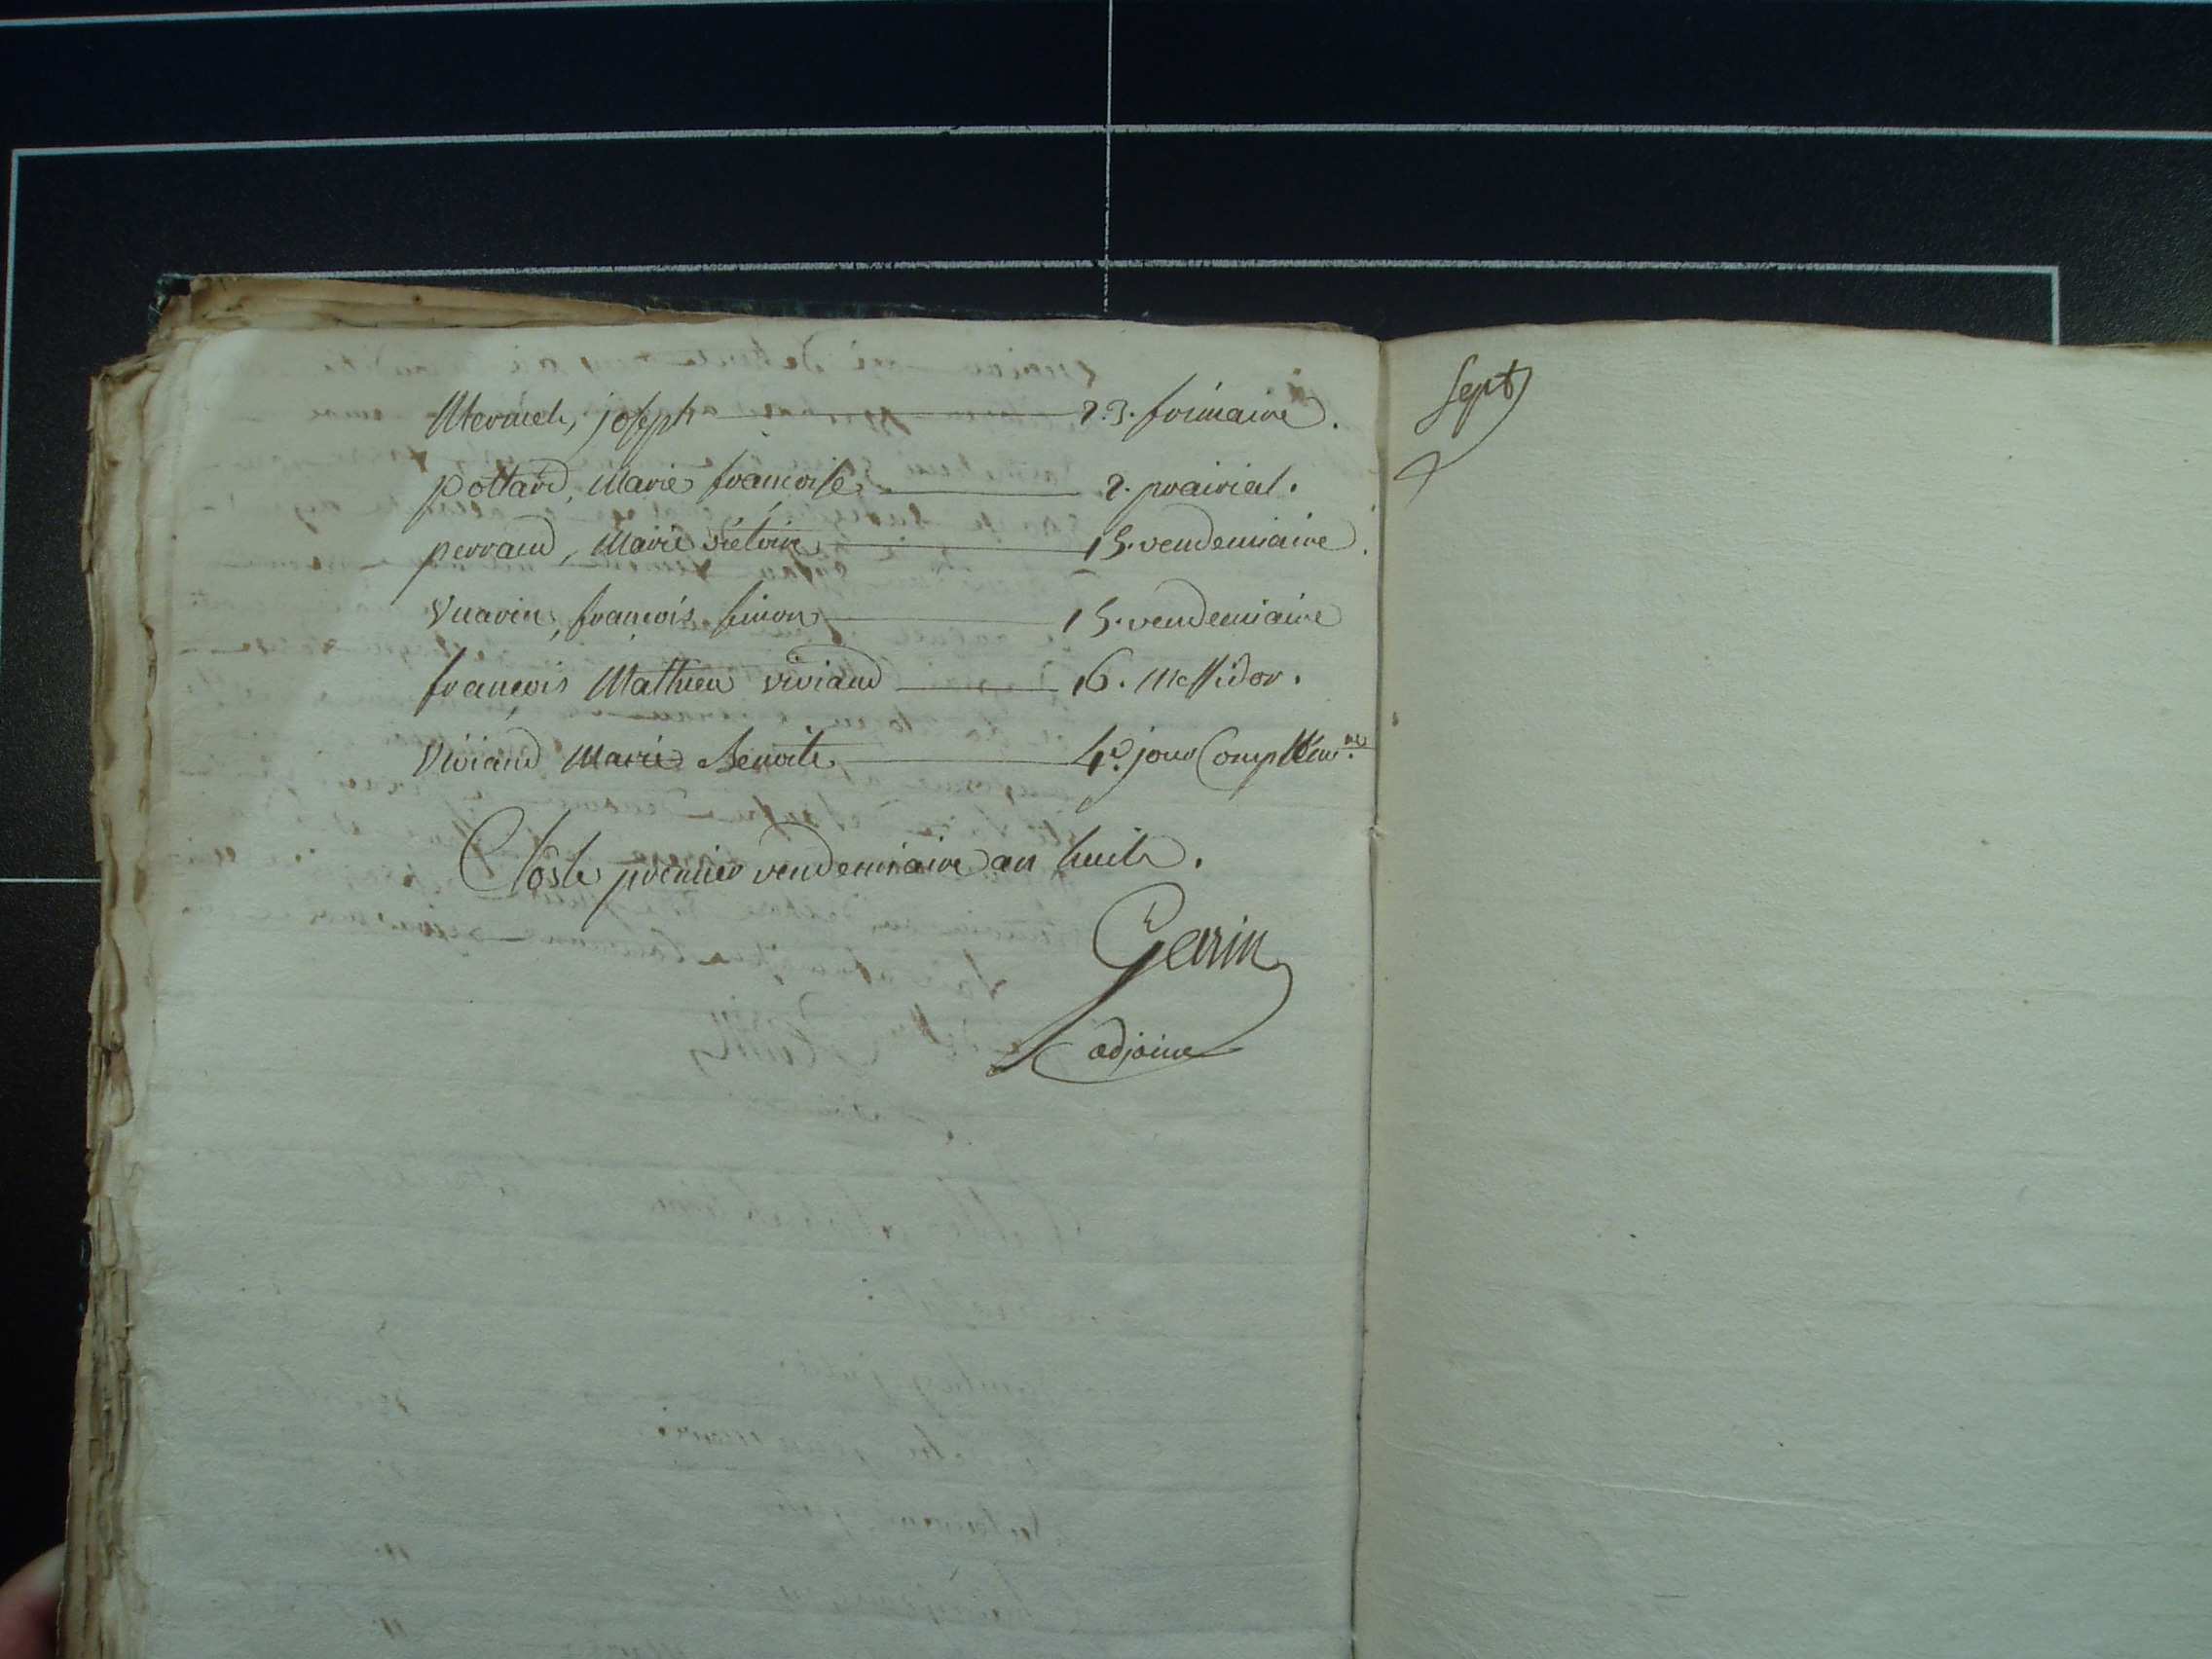 Mermet, joseph 23. frimaire.
pottard, Marie françoise 2. prairial.
perraud, Marie victoire 15. vendemiaire.
Vuarin, françois simon 15. vendemiaire
françois Mathieu viviand 16. Messidor.
Viviand Marie Benoite 4e. jour Complem.re
Clos le premier vendemiaire an huit.
Garin
adjoint
Sept